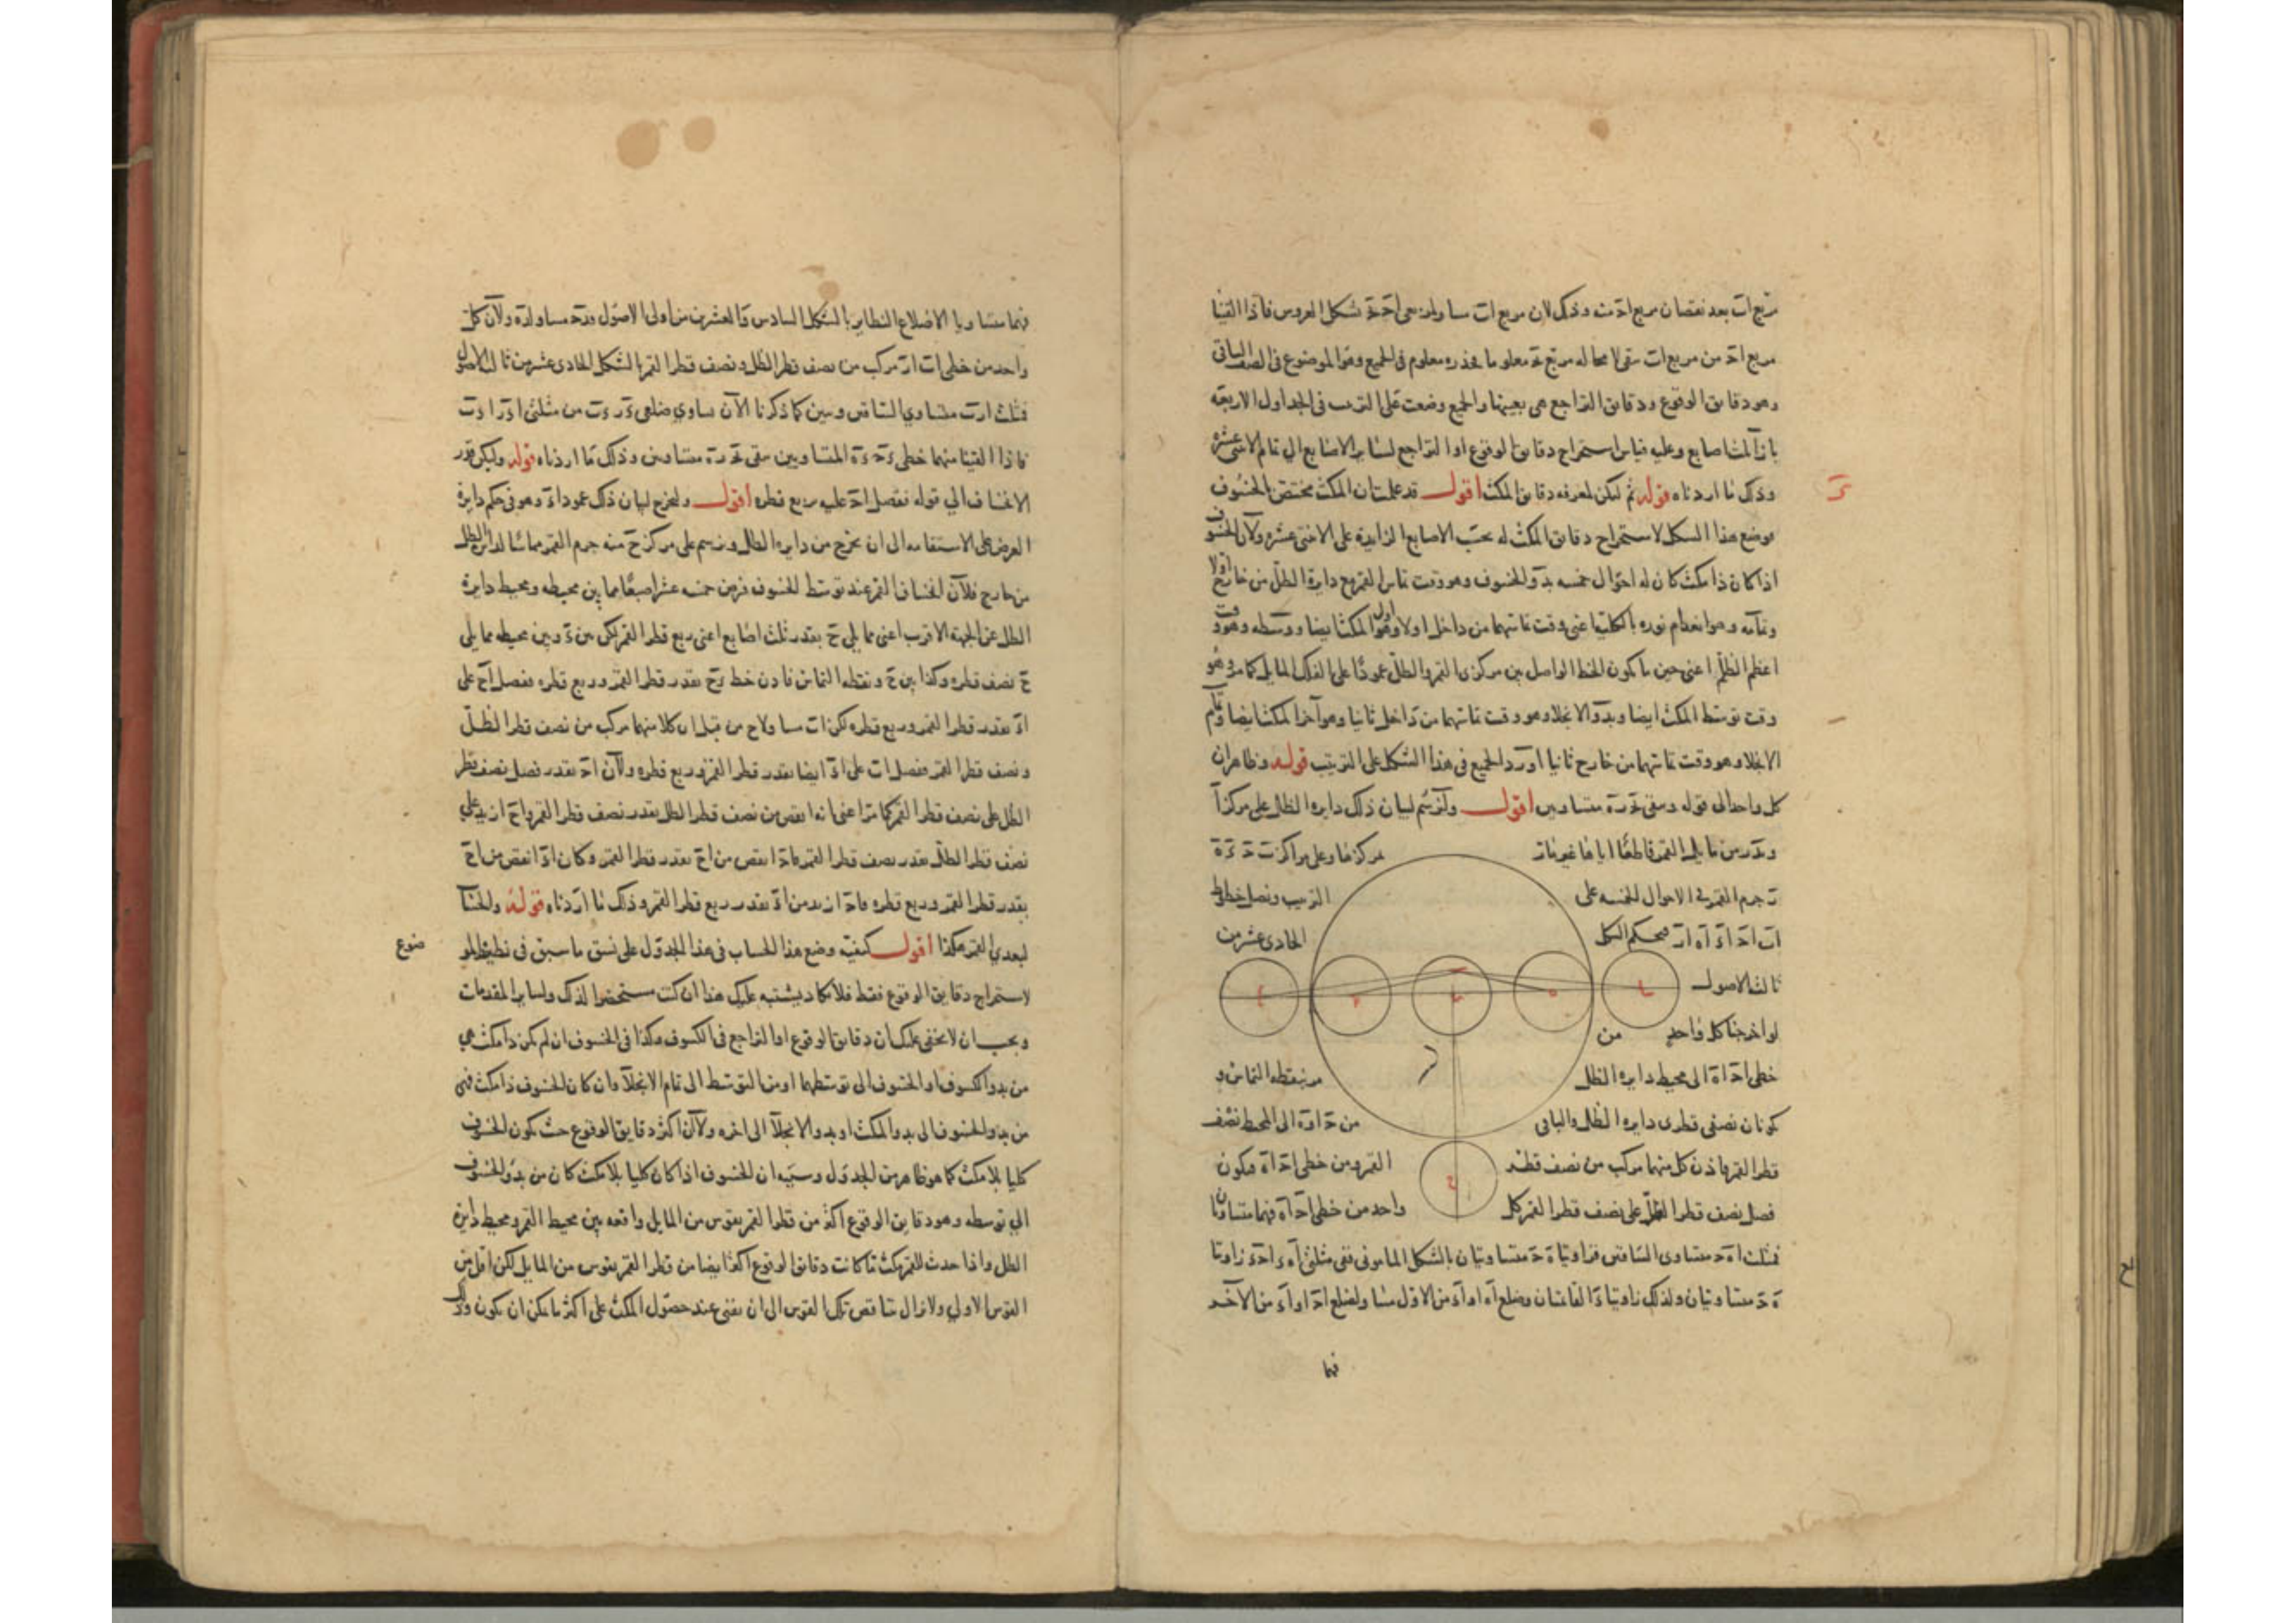 مربع ات بعد نقصان مربع اح منه وذلك لان مربع ات مساو لمربعي اح حه بشكل العروس فاذا القينا
مربع اح من مربع ات بقي لا محاله مربع حه معلوما فجذره معلوم في الجميع وهو الموضوع في الصف الباقي
وهو دقايق الوقوع ودقايق التراجع هي بعينها والجميع وضعت على الترتيب في الجداول الاربعة
بازآ ثلث اصابع وعليه قياس استخراج دقايق الوقوع او التراجع لساير الاصابع الي تمام الاثني عشرة
وذلك ما اردناه قوله ثم ليكن لمعرفه دقايق المكث اقول قد علمت ان المكث مختص بالخسوف
فوضع هذا الشكل لاستخراج دقايق المكث له بحسب الاصابع الزايدة على الاثنى عشره ولان الخسوف
اذا كان ذا مكث كان له احوال خمسه بدو الخسوف وهو وقت تماس القمر مع دايرة الظل من خارج اولا
وتمامه وهو انعدام نوره بالكلية اعني وقت تماسهما من داخل اولا وهو اول المكث ايضا ووسطه وهو وقت
اعظم الظلم اعنى حين ما يكون الخط الواصل بين مركزى القمر والظل عمودا على الفلك المايل كما مر وهو
وقت توسط المكث ايضا وبدو الانجلا وهو وقت تماسهما من داخل ثانيا وهو آخر المكث ايضا وتمام
الانجلا وهو وقت تماسهما من خارج ثانيا اورد الجميع في هذا الشكل على الترتيب قوله وظاهر ان
كل واحد الى قوله وبقي حه ره متساويين اقول ولنرسم لبيان ذلك دايرة الظل على مركز آ
مركزها وعلى مراكز ب ح ء ه
ر جرم القمر في الاحوال الخمسه على الترتيب ونصل خطوط
ات اح اء اه ار فبحكم الشكل الحادى عشر من
ثالثة الاصول
لو اخرجنا كل واحد من
خطى اح اه الى محيط دايرة الظل مر بنقطه التماس و
كونان نصفى قطرى دايرة الظل والباقى من ح اوه الى المحيط نصف
قطر القمر فاذن كل منهما مركب من نصف قطر القمر ومن خطى اح اه فيكون
فصل نصف قطر الظل على نصف قطر القمر كل واحد من خطى اح اه فهما متساويان
فمثلث اه ح متساوى الساقين فزاويتا ه ح متساويتان بالشكل المامونى ففي مثلثى اه ء اح ء زاويتا
ه ح متساويتان ولذلك زاويتا ء القائمتان وضلع اه او اء من الاول مساو لضلع اح او اء من الآخر
فهما
فهما متساويا الاضلاع النظاير بالشكل السادس والعشرين من اولى الاصول فء ح مساو لء ه ولان كل
واحد من خطى ات ار مركب من نصف قطر الظل ونصف قطر القمر بالشكل الحادى عشر من ثالثة الاصول
فمثلث ارت متساوي الساقين وتبين كما ذكرنا الآن تساوي ضلعى ء ر ء ت من مثلثى اء ر اء ت
فاذا القينا منهما خطى ء ح ء ه المتساويين بقى ت ح ر ه متساويين وذلك ما اردناه قوله وليكن قدر
الانخساف الي قوله بفضل اح عليه ربع قطره اقول ولنخرج لبيان ذلك عمود اء وهو في حكم دايرة
العرض على الاستقامه الى ان يخرج من دايره الظل ونرسم على مركز ح منه جرم القمر مماسا لدايرة الظل
من خارج فلان انخساف القمر عند توسط الخسوف فرض خمسه عشر اصبعا فما بين محيطه ومحيط دايرة
الظل عن الجهة الاقرب اعنى مما يلي ح بقدر ثلث اصابع اعنى ربع قطر القمر لكن من ء وبين محيطه مما يلي
ح نصف قطره وكذا بين ح ونقطه التماس فاذن خط ء ح بقدر قطر القمر وربع قطره ففصل اح على
اء بقدر قطر القمر وربع قطره لكن ات مساو لاح من قبل ان كلا منهما مركب من نصف قطر الظل
ونصف قطر القمر ففضل ات على اء ايضا بقدر قطر القمر وربع قطره ولان اح بقدر فصل نصف قطر
الظل على نصف قطر القمر كما مر اعنى انه انقص من نصف قطر الظل بقدر نصف قطر القمر واح ازيد على
نصف قطر الظل بقدر نصف قطر القمر فاح انقص من اح بقدر قطر القمر وكان اء انقص من اح
بقدر قطر القمر وربع قطره فاح ازيد من اء بقدر ربع قطر القمر وذلك ما اردناه قوله والحسا
لبعدي القمر هكذا اقول كيفية وضع هذا الحساب في هذا الجدول على نسق ما سبق في نظيره الموضوع
لاستخراج دقايق الوقوع فقط فلا يكاد يشتبه عليك هذا ان كنت مستحضرا لذلك ولساير المقدمات
ويجب ان لا يخفى عليك ان دقايق الوقوع او التراجع في الكسوف وهكذا في الخسوف ان لم يكن ذا مكث هي
من بدو الكسوف او الخسوف الى توسطهما او من التوسط الى تمام الانجلآ وان كان الخسوف ذا مكث فهى
من بدو الخسوف الى بدو المكث او بدو الانجلآ الى اخره ولان اكثر دقايق الوقوع حيث يكون الخسوف
كليا بلا مكث كما هو ظاهر من الجدول وسببه ان الخسوف اذا كان كليا بلا مكث كان من بدو الخسوف
الي توسطه وهو دقايق الوقوع اكثر من قطر القمر بقوس من المايل واقعه بين محيط القمر ومحيط دايرة
الظل واذا حدث للقمر مكث ما كانت دقايق الوقوع اكثر ايضا من قطر القمر بقوس من المايل لكن اقل من
القوس الاولي ولا يزال يتناقص تلك القوس الى ان يفنى عند حصول المكث على اكثر ما يمكن ان يكون وذلك